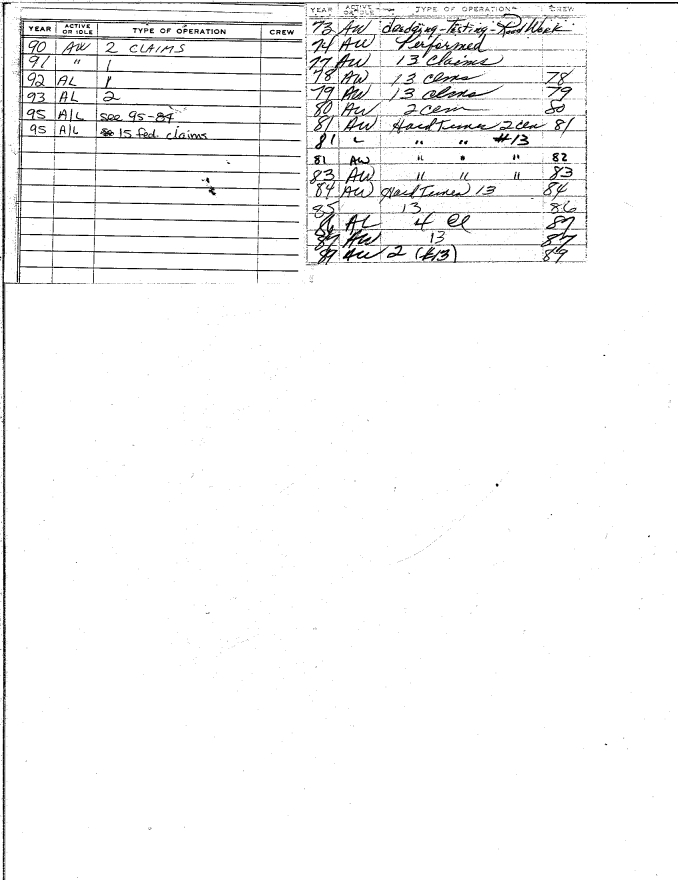 YEAR ACTIVE OR IDLE TYPE OF OPERATION CREW
90 AW 2 CLAIMS
91 " 1
92 AL 1
93 AL 2
95 A/L see 95-84
95 A/L 15 fed. claims
YEAR ACTIVE OR IDLE TYPE OF OPERATION CREW
73 AW dredging-Testing-Road Work
74 AW Performed
77 AW 13 Claims
78 AW 13 clms 78
79 AW 13 clms 79
80 AW 2 80
81 AW Hard Times 2 81
81 " " #13
81 AW " " " 82
83 AW " " " 83
84 AW Hard Times 13 84
85 13 86
86 AL 4 Cl 87
87 AW 13 87
89 AW 2 (#13) 89